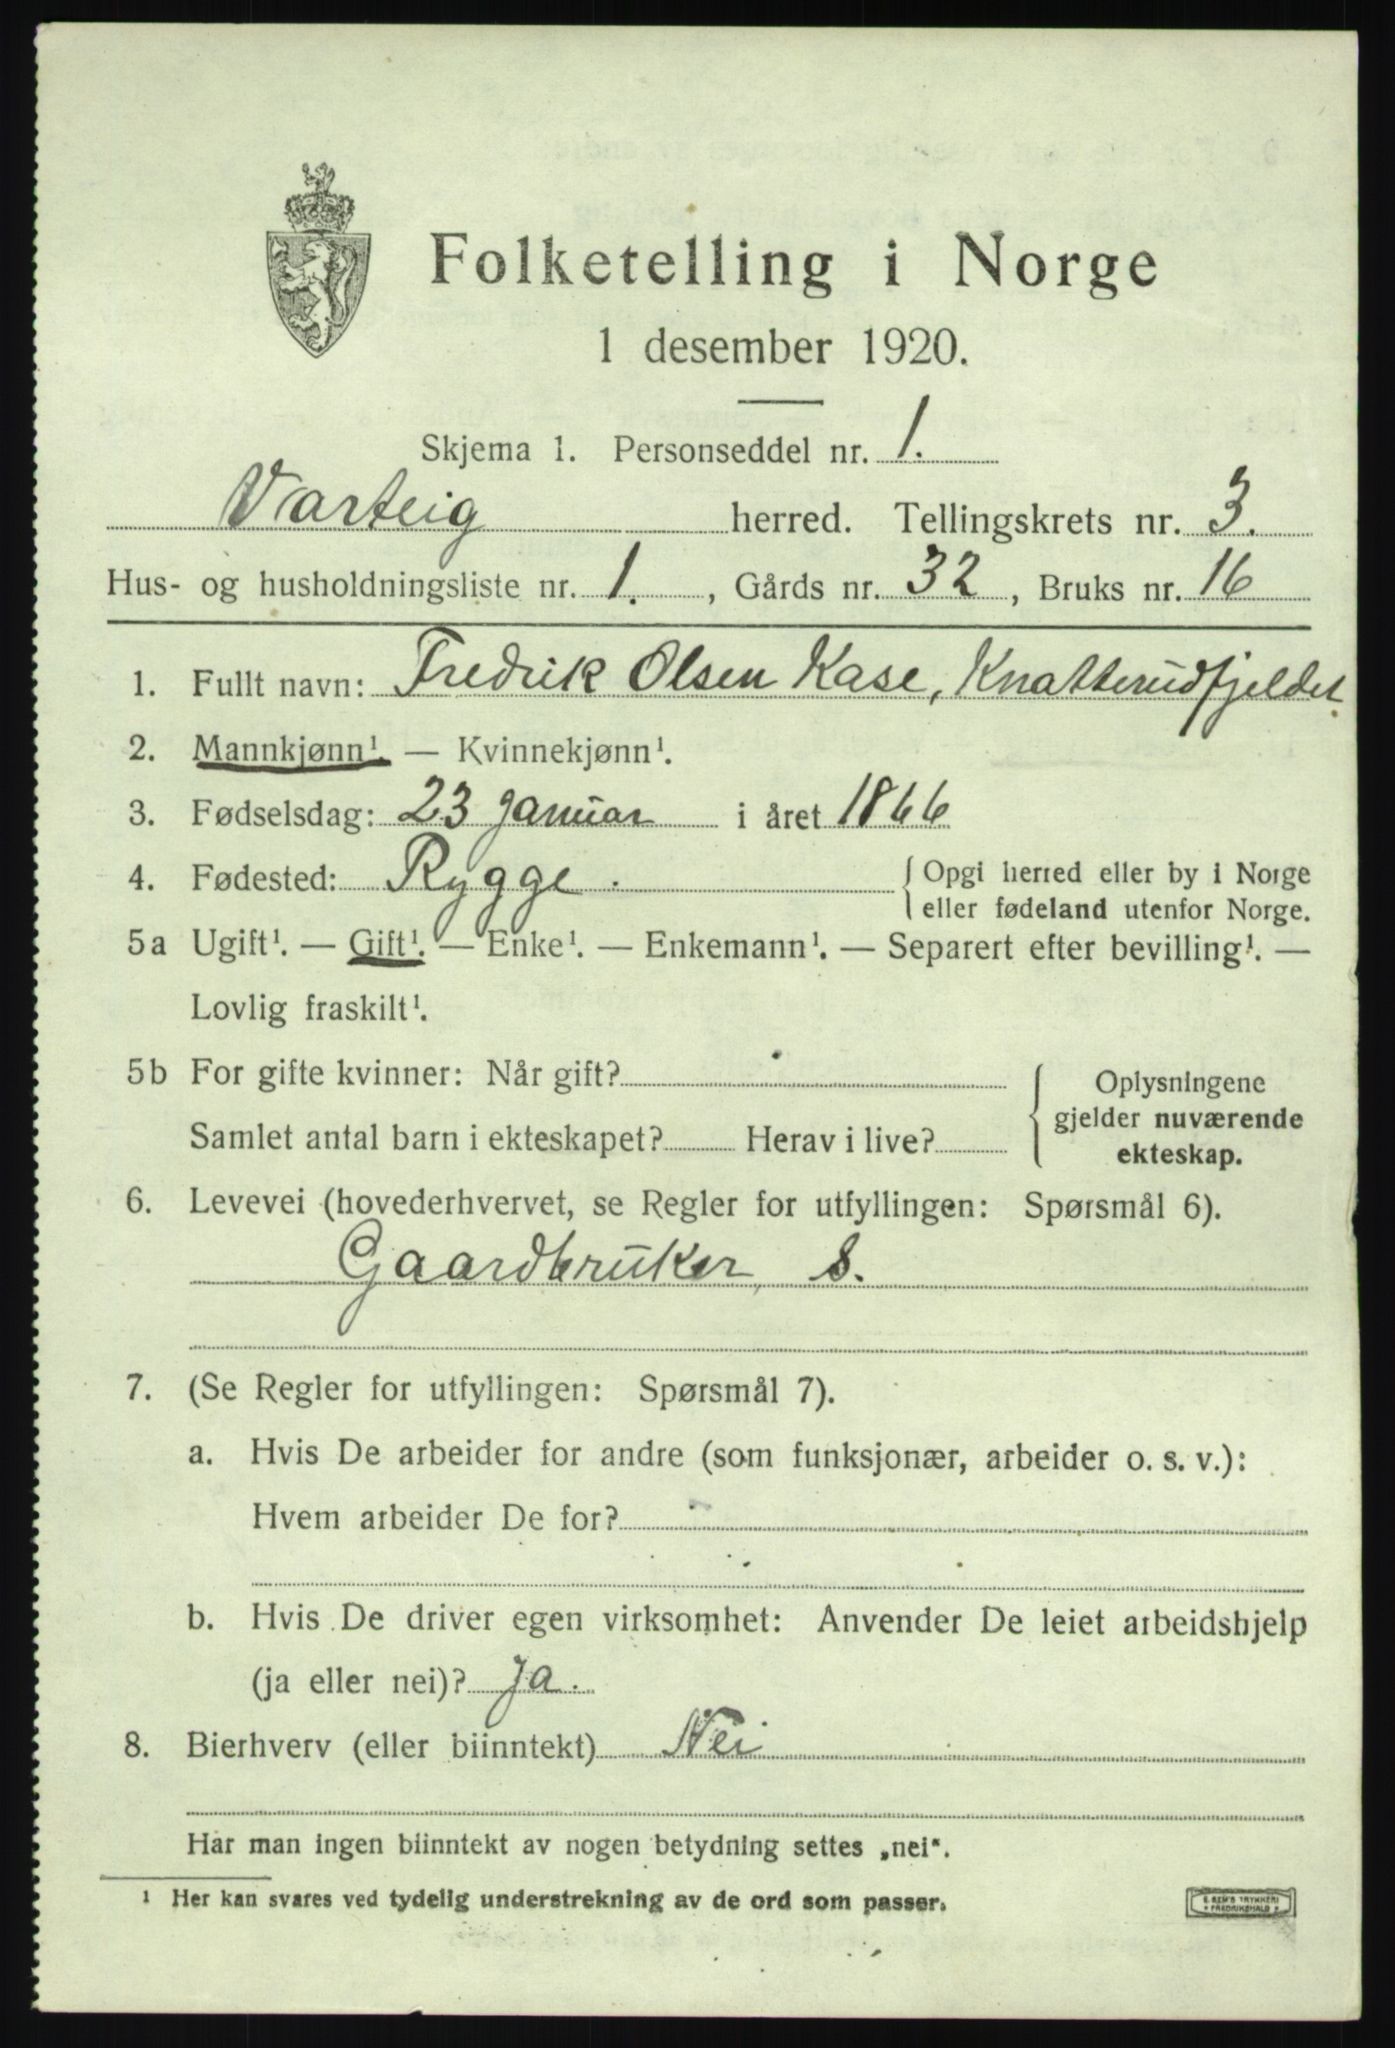 Folketelling i Norge
1 desember 1920.
Skjema 1. Personseddel nr. 1.
Varteig herred. Tellingskrets nr. 3.
Hus- og husholdningsliste nr. 1., Gårds nr. 32, Bruks nr. 16
1. Fullt navn: Fredrik Olsen Kase, Knatterudfjeldet.
2. Mannkjønn¹. — Kvinnekjønn¹.
3. Fødselsdag: 23 januar i året 1866
4. Fødested: Rygge. { Opgi herred eller by i Norge
eller fødeland utenfor Norge.
5a Ugift¹. — Gift¹. — Enke¹. — Enkemann¹. — Separert efter bevilling¹. —
Lovlig fraskilt¹.
5b For gifte kvinner: Når gift? { Oplysningene
gjelder nuværende
Samlet antal barn i ekteskapet? Herav i live?
ekteskap.
6. Levevei (hovederhvervet, se Regler for utfyllingen: Spørsmål 6).
Gaardbruker, s.
7. (Se Regler for utfyllingen: Spørsmål 7).
a. Hvis De arbeider for andre (som funksjonær, arbeider o. s. v.):
Hvem arbeider De for?
b. Hvis De driver egen virksomhet: Anvender De leiet arbeidshjelp
(ja eller nei)? Ja.
8. Bierhverv (eller biinntekt) Nei
Har man ingen biinntekt av nogen betydning settes „nei“.
¹ Her kan svares ved tydelig understrekning av de ord som passer.
E. SEM'S TRYKKERI
FREDRIKSHALD